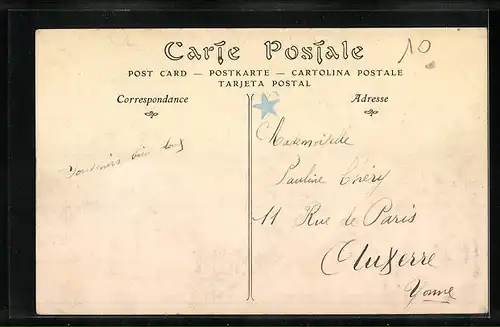 Carte Postale
10
POST CARD — POSTKARTE — CARTOLINA POSTALE
TARJETA POSTAL
Correspondance
Adresse
Souvenirs bien
Mademoiselle
Pauline Chéry
11 Rue de Paris
Auxerre
Yonne